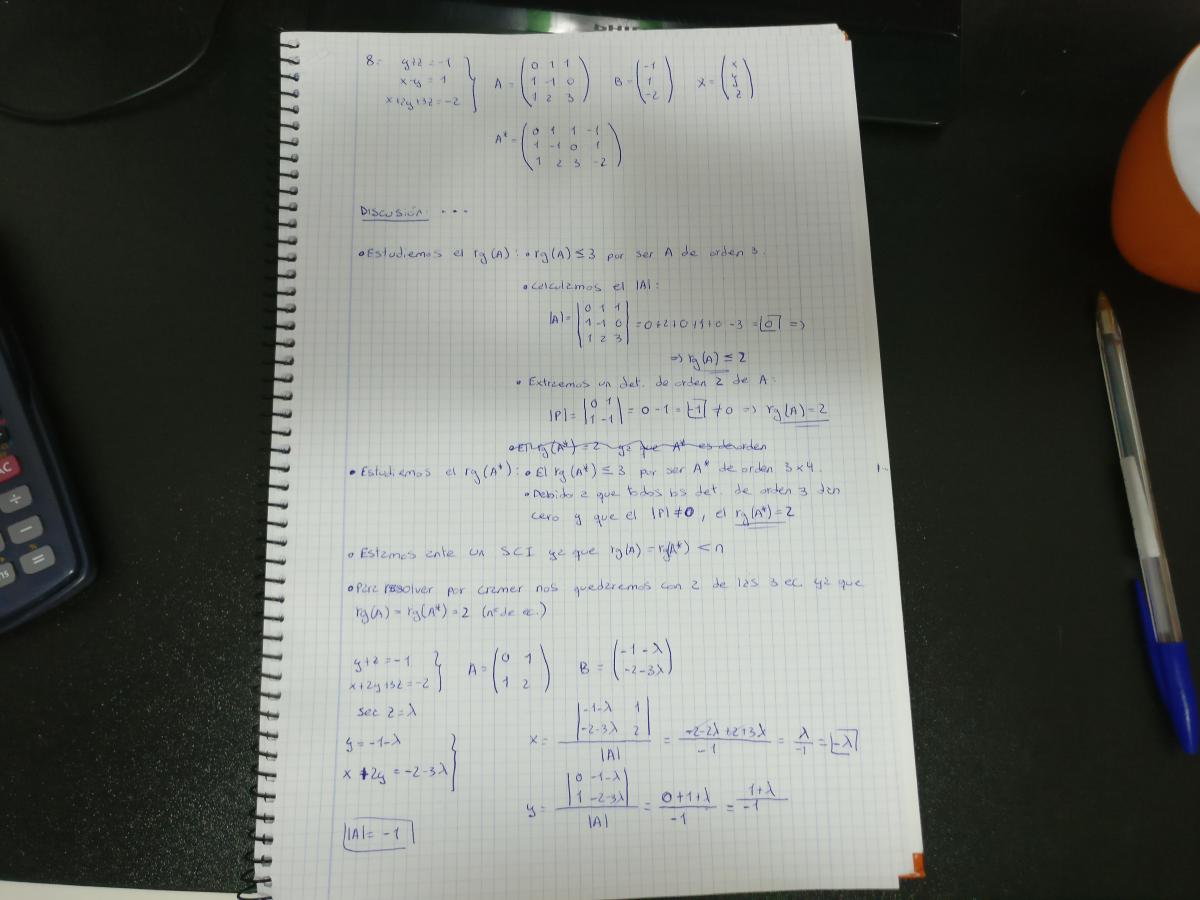 8:
y+z = -1
x-y = 1
x+2y+3z = -2
A = (0 1 1
1 -1 0
1 2 3)
B = (-1
1
-2)
X = (x
y
z)
A* = (0 1 1 -1
1 -1 0 1
1 2 3 -2)
DISCUSIÓN: ...
• Estudiemos el rg(A): • rg(A) ≤ 3 por ser A de orden 3.
• Calculamos el |A|:
|A| = |0 1 1
1 -1 0
1 2 3| = 0+2+0+1+0-3 = 0 =>
=> rg(A) ≤ 2
• Extraemos un det. de orden 2 de A:
|P| = |0 1
1 -1| = 0-1 = -1 ≠ 0 => rg(A) = 2
• El rg(A*) = 2 ya que A* es de orden
• Estudiemos el rg(A*): • El rg(A*) ≤ 3 por ser A* de orden 3x4.
• Debido a que todos los det. de orden 3 dan
cero y que el |P| ≠ 0, el rg(A*) = 2
• Estamos ante un SCI ya que rg(A) = rg(A*) < n
• Para resolver por cramer nos quedaremos con 2 de las 3 ec. ya que
rg(A) = rg(A*) = 2 (nº de ec.)
y+z = -1
x+2y+3z = -2
sea z = λ
A = (0 1
1 2)
B = (-1-λ
-2-3λ)
y = -1-λ
x+2y = -2-3λ
|A| = -1
x = |-1-λ 1
-2-3λ 2| / |A| = -2-2λ+2+3λ / -1 = λ / -1 = -λ
y = |0 -1-λ
1 -2-3λ| / |A| = 0+1+λ / -1 = 1+λ / -1
AC
÷
−
=